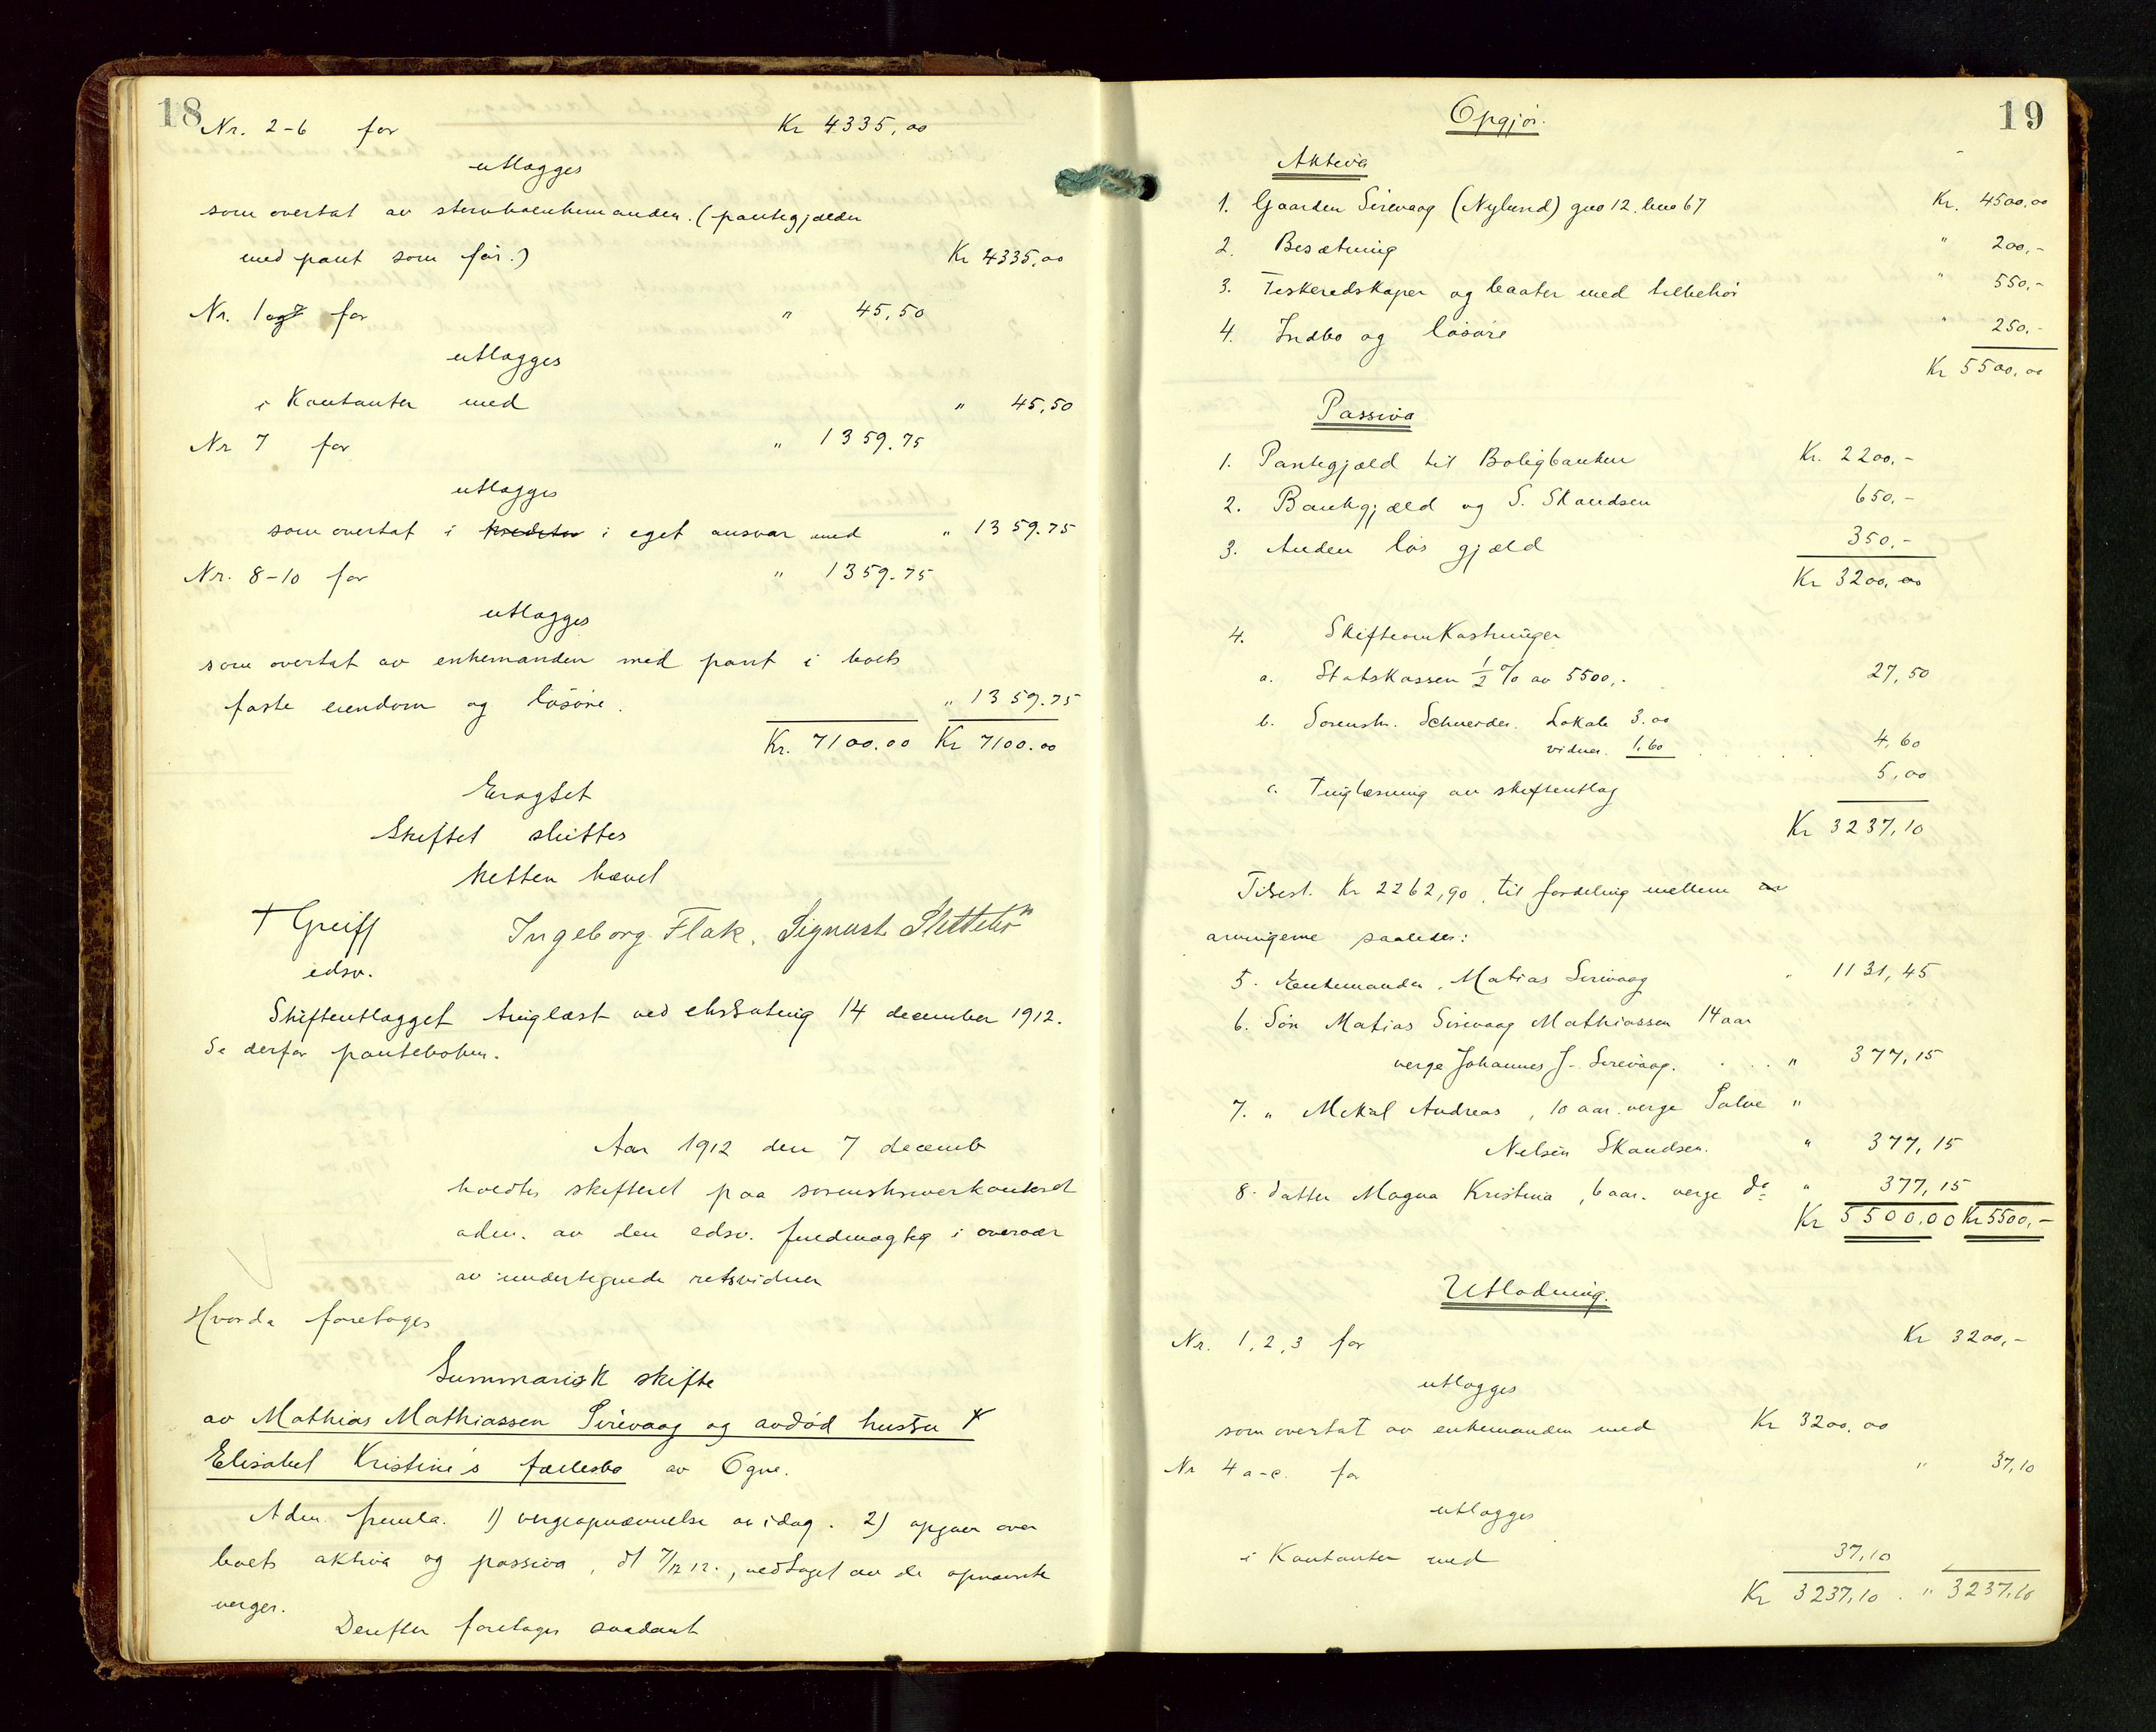 18
Nr. 2-6 for Kr 4335,00
utlægges
som overtat av stervboenkemanden. (pantegjælden
med pant som før.) Kr 4335,00
Nr. 1 og 7 for " 45,50
utlægges
i Kontanter med " 45,50
Nr 7 for " 1359.75
utlægges
som overtat i kreditor i eget ansvar med " 1359.75
Nr. 8-10 for " 1359.75
utlægges
som overtat av enkemanden med pant i boets
faste eiendom og løsøre. " 1359.75
Kr. 7100.00 Kr 7100.00
Eragtet
Skiftet sluttes
Retten hævet
T Greiff
edsv.
Ingeborg Flak. Sigmust Slettebø
Skifteutlægget tinglæst ved ekstrating 14 december 1912.
Se derfor panteboken.
Aar 1912 den 7 decemb
holdtes skifteret paa sorenskriverkontoret
adm. av den edsv. fuldmægtig i overvær
av undertegnede retsvidner
Hvorda foretoges
Summarisk skifte
av Mathias Mathiassen Sirevaag og avdød hustru
Elisabet Kristine's fællesbo av Ogne.
Adm. fremla. 1) vergeopnævnelse av idag. 2) opgave over
boets aktiva og passiva, dt 7/12 12., vedtaget av de opnævnte
verger.
Derefter foretoges saadant
19
Opgjør.
Aktiva
1. Gaarden Sirevaag (Nylund) gno 12. bno 67 Kr. 4500,00
2. Besætning " 200,-
3. Fiskeredskaper og baater med tilbehør " 550,-
4. Indbo og løsøre " 250.-
Kr 5500,00
Passiva
1. Pantegjæld til Boligbanken Kr. 2200,-
2. Bankgjæld og S. Skandsen 650,-
3. Anden løs gjæld 350,-
Kr 3200,00
4. Skifteomkostninger
a. Statskassen 1/2 % av 5500,- 27,50
b. Sorenskr. Schneider. Lokale 3.00
vidner. 1,60 4,60
c. Tinglæsning av skifteutlæg 5,00
Kr 3237,10
Tilrest. Kr 2262,90, til fordeling mellem
arvingerne saaledes:
5. Enkemanden, Matias Sirevaag " 1131,45
6. Søn Matias Sirevaag Mathiassen 14 aar
verge Johannes J. Sirevaag. . . . " 377,15
7. " Mikal Andreas, 10 aar. verge Salve "
Nilsen Skandsen. " 377,15
8. datter Magna Kristina, 6 aar. verge do " 377,15
Kr 5500,00 Kr 5500,-
Utlodning.
Nr. 1, 2, 3 for Kr 3200,-
utlægges
som overtat av enkemanden med Kr 3200,00
Nr 4 a-c. for " 37,10
utlægges
i Kontanter med 37,10
Kr 3237,10. " 3237,10